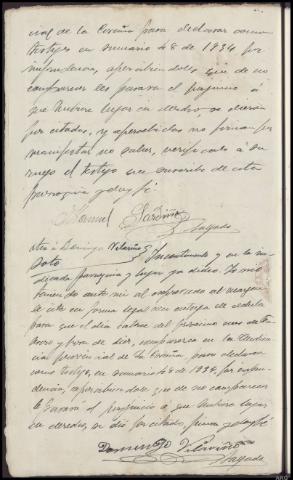 cial de la Coruña para declarar como
testigo en sumario 48 de 1934 por
imprudencia, apercibiendole que de no
comparecer les parara el perjuicio á
que hubiere lugar en derecho se dieron
por citados, y apercibidos no firman por
manifestar no saber, verificalo á su
ruego el testigo que suscribe de esta
parroquia y doy fé
Manuel Sardiña
Otra á Domingo Vilariño
Soto Incontinenti y en la in
dicada parroquia y lugar yo
teniendo ante mi al expresado al margen
le cite en forma legal con entrega de cedula
para que el dia catorce del proximo mes de Fe
brero y hora de diez, comparezca en la Audien
cia provincial de la Coruña, para declarar
como testigo, en sumario 48 de 1934, por impru
dencia, apercibiendole que de no comparecer
le parara el perjuicio á que hubiere lugar
en derecho, se dió por citado, firma y doy fé
Domingo Vilariño